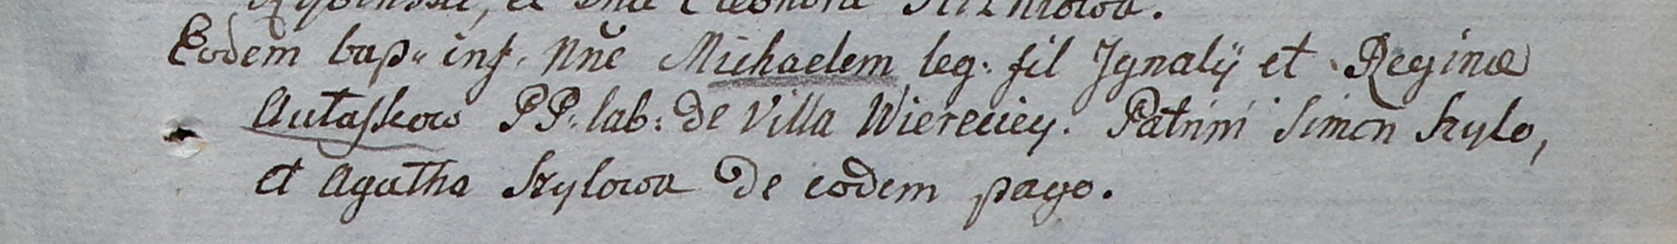 et Dna Eleonora
Eodem bap: inf. Nne Michaelem leg: fil Jgnatij et Reginæ
Autaskow PP. lab: de Villa Wiereciey. Patrini Simon Szylo,
et Agatha Szylowa de eodem pago.